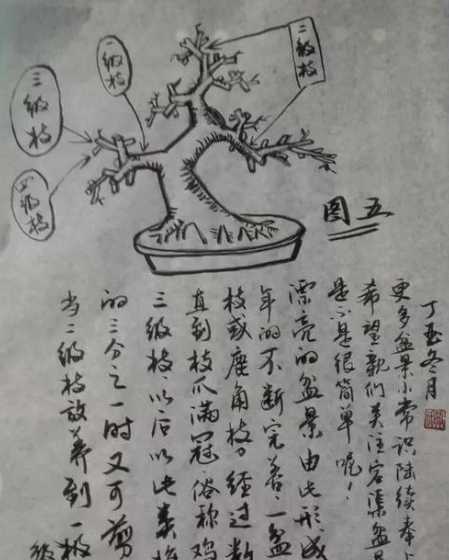 二级枝
一级枝
三级枝
四级枝
图五
当二级枝放养到一级
的三分之一时又可剪
三级枝,以后以此类推
直到枝爪满冠俗称鸡
枝或鹿角枝。经过数
年的不断完善。一盆
漂亮的盆景由此形成
是不是很简单呢!
希望亲们关注容渠盆
更多盆景小常识陆续奉上
丁酉冬月